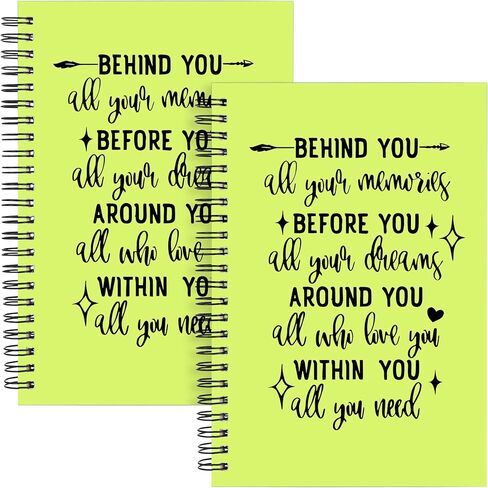 BEHIND YOU
all your mem
BEFORE YO
all your drea
AROUND YO
all who love
WITHIN YO
all you need
BEHIND YOU
all your memories
BEFORE YOU
all your dreams
AROUND YOU
all who love you
WITHIN YOU
all you need